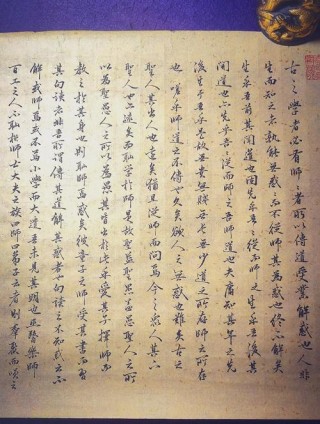 古之學者必有師師者所以傳道受業解惑也人非
生而知之者孰能無惑惑而不從師其為惑也終不解矣
生乎吾前其聞道也固先乎吾吾從而師之生乎吾後其
聞道也亦先乎吾吾從而師之吾師道也夫庸知其年之先
後生於吾乎是故無貴無賤無長無少道之所存師之所存
也嗟乎師道之不傳也久矣欲人之無惑也難矣古之
聖人其出人也遠矣猶且從師而問焉今之眾人其下
聖人也亦遠矣而恥學於師是故聖益聖愚益愚聖人之所
以為聖愚人之所以為愚其皆出於此乎愛其子擇師而
教之於其身也則恥師焉惑矣彼童子之師授其書而習
其句讀者也非吾所謂傳其道解其惑者也句讀之不知惑之不
解或師焉或不焉小學而大遺吾未見其明也巫醫樂師
百工之人不恥相師士大夫之族曰師曰弟子云者則羣聚而笑之